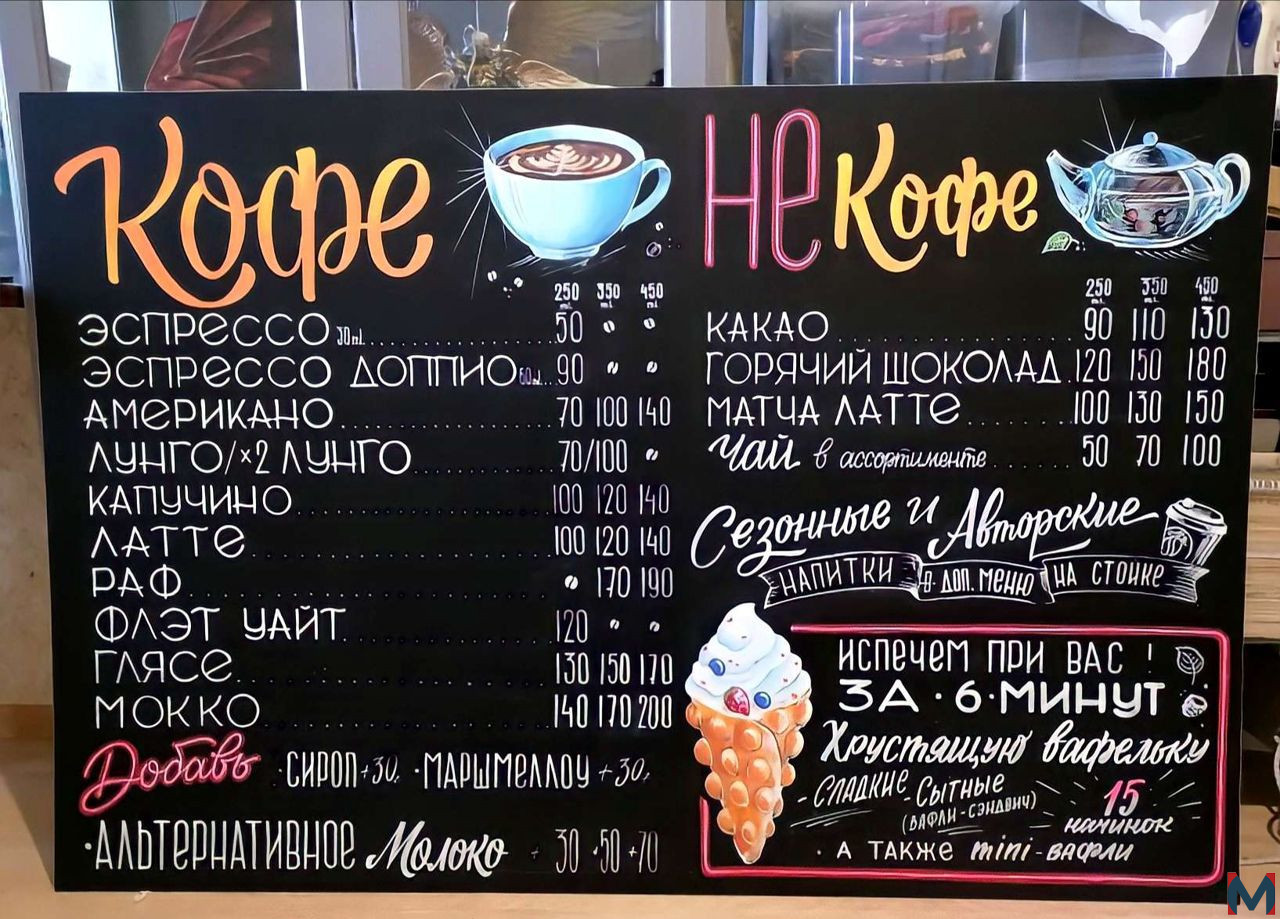 Кофе
250 350 450
ml. ml. ml.
ЭСПРЕССО 30ml. 50
ЭСПРЕССО ДОППИО 60ml. 90
АМЕРИКАНО 70 100 140
ЛУНГО/×2 ЛУНГО 70/100
КАПУЧИНО 100 120 140
ЛАТТЕ 100 120 140
РАФ 170 190
ФЛЭТ УАЙТ 120
ГЛЯСЕ 130 150 170
МОККО 140 170 200
Добавь · СИРОП +30, · МАРШМЕЛЛОУ +30,
· АЛЬТЕРНАТИВНОЕ Молоко + 30 +50 +70
Не Кофе
250 350 450
ml. ml. ml.
КАКАО 90 110 130
ГОРЯЧИЙ ШОКОЛАД 120 150 180
МАТЧА ЛАТТЕ 100 130 150
Чай в ассортименте 50 70 100
Сезонные и Авторские
НАПИТКИ В ДОП. МЕНЮ НА СТОЙКЕ
ИСПЕЧЕМ ПРИ ВАС !
ЗА · 6 · МИНУТ
Хрустящую вафельку
- СЛАДКИЕ - СЫТНЫЕ
(ВАФЛИ-СЭНДВИЧ)
15
начинок
· А ТАКЖЕ mini-вафли
M